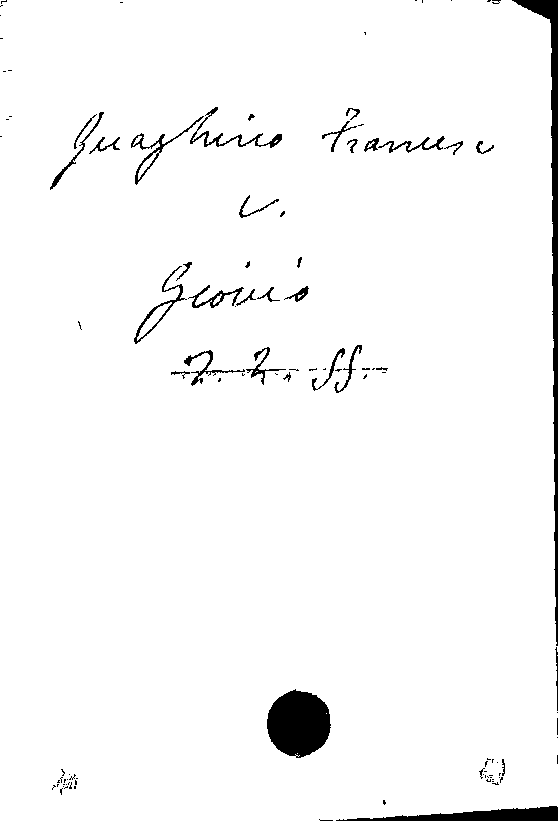 Guaghino Francesc
v.
Giovio
2. 2. ff.